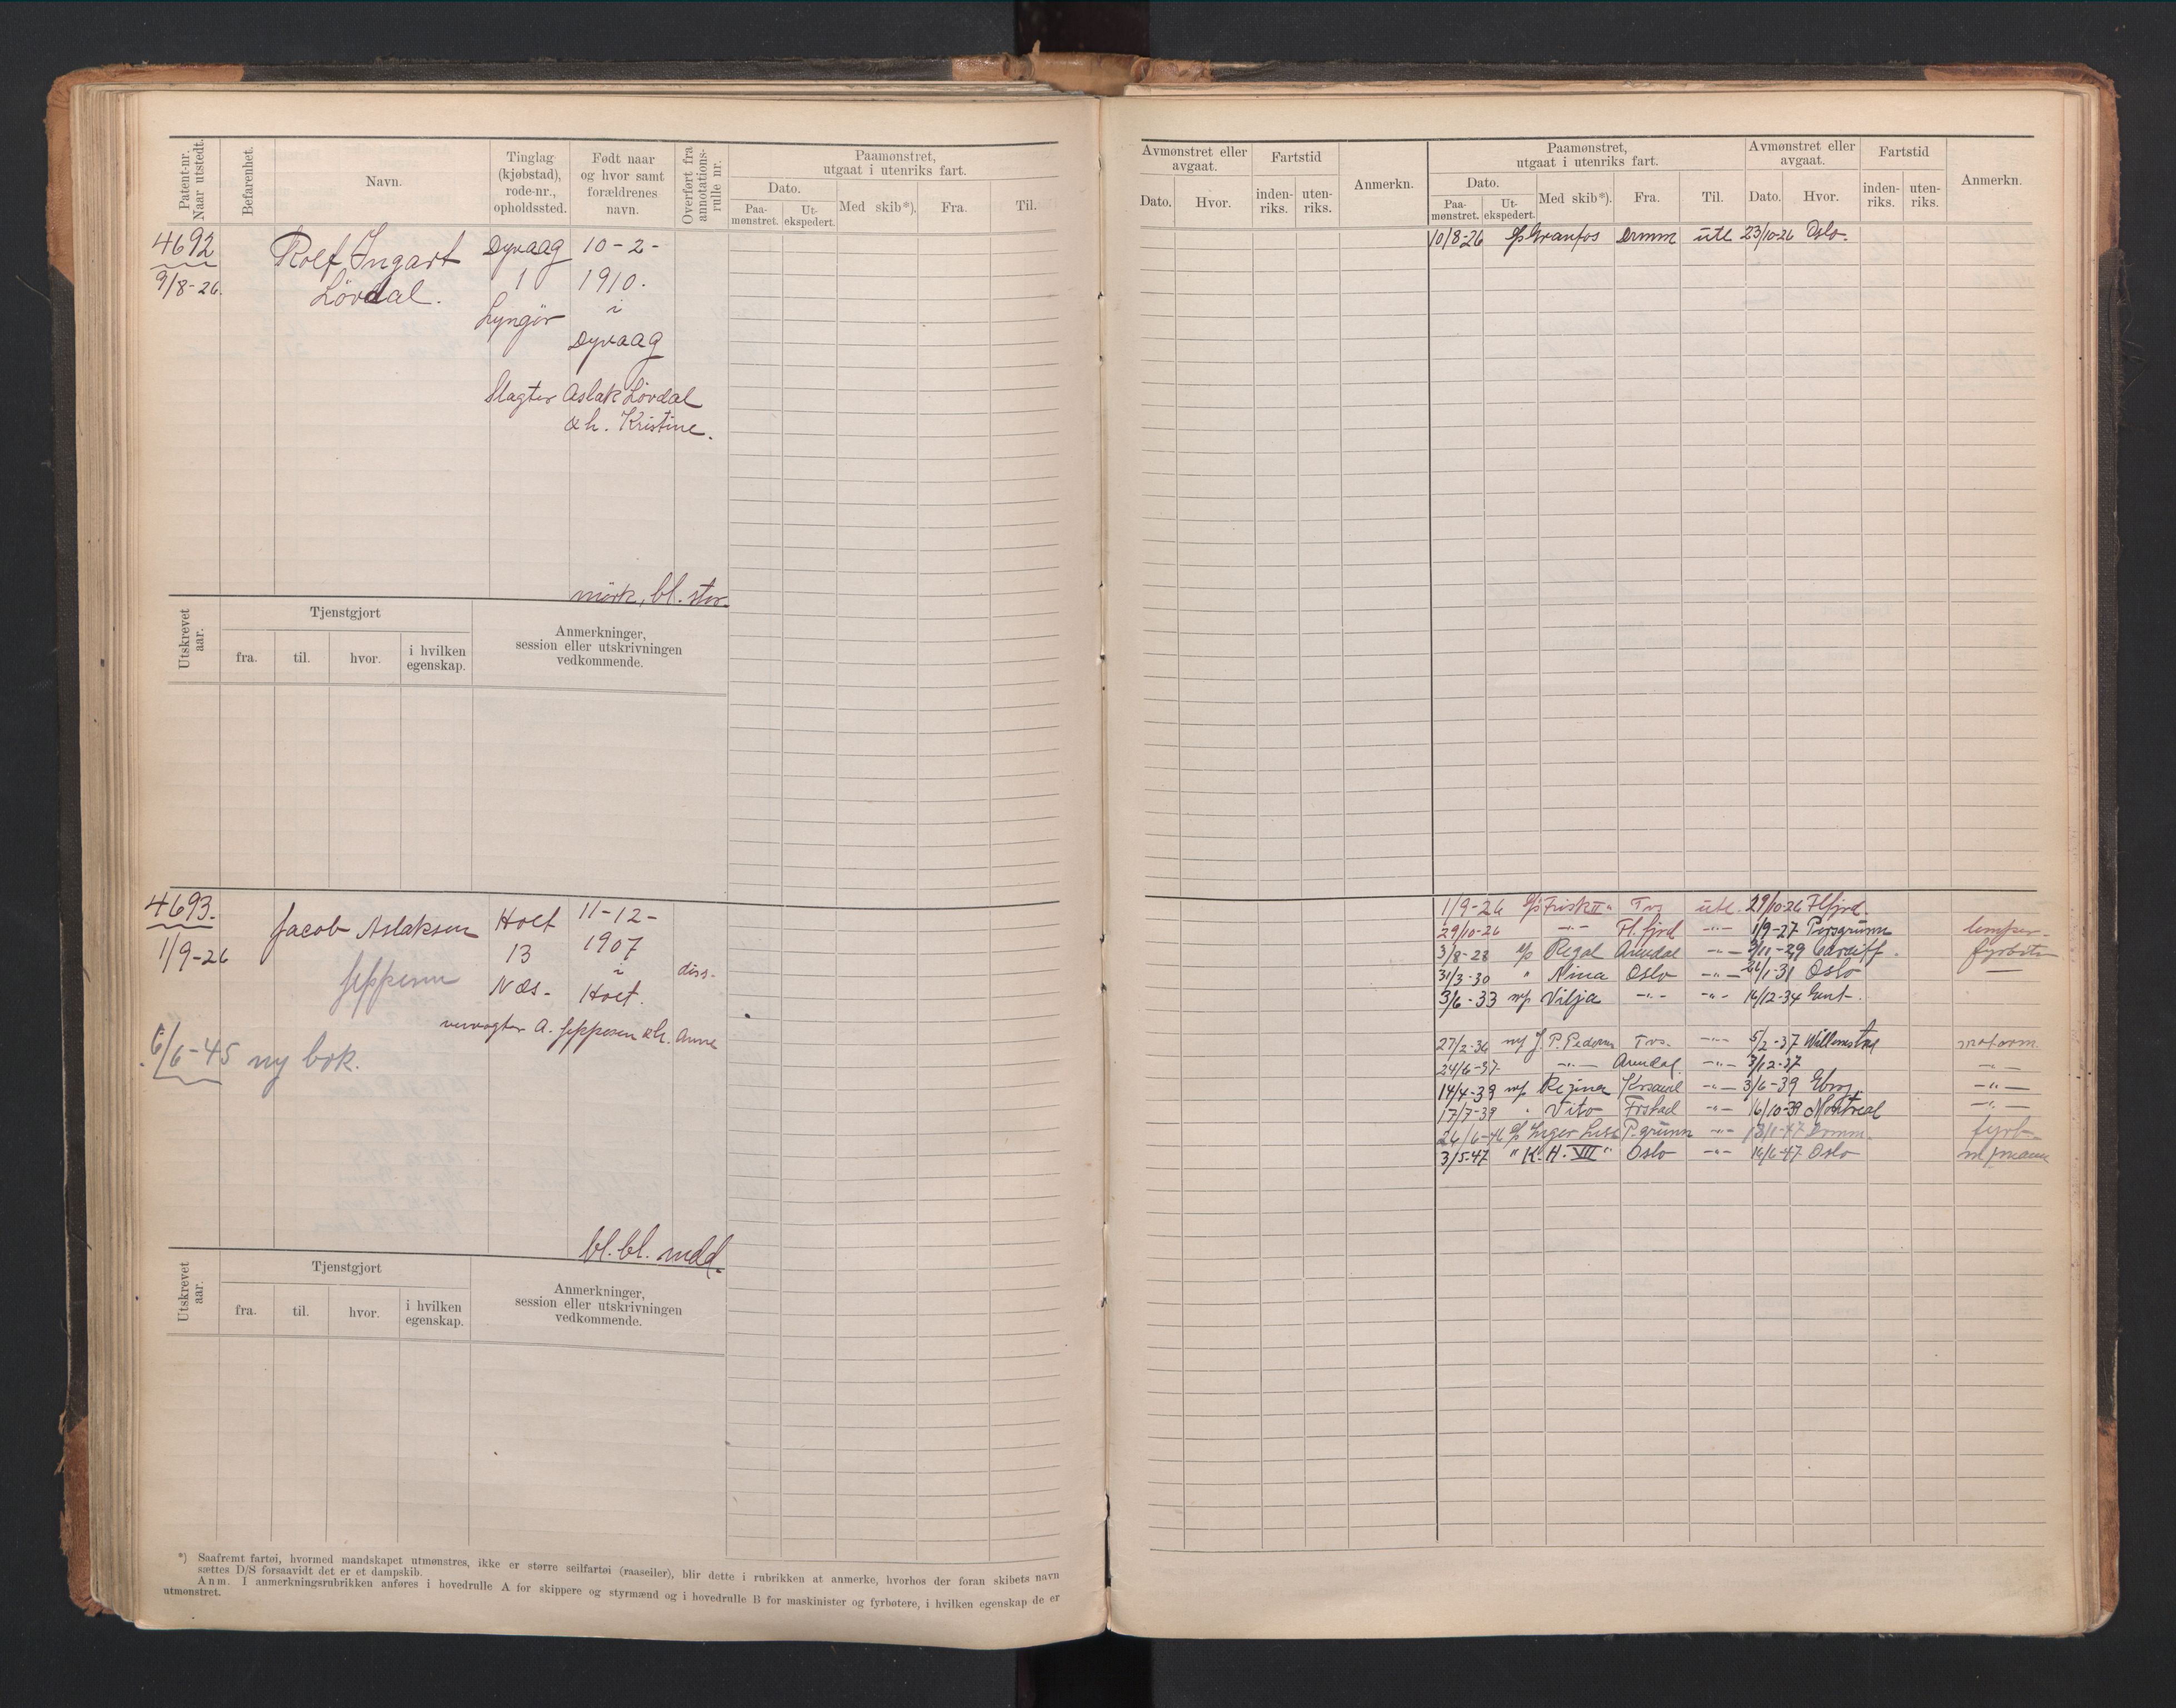 Patent-nr. Naar utstedt.
Befarenhet.
Navn.
Tinglag (kjøbstad), rode-nr., opholdssted.
Født naar og hvor samt forældrenes navn.
Overført fra annotations-rulle nr.
Paamønstret, utgaat i utenriks fart.
Dato.
Paa-mønstret.
Ut-ekspedert.
Med skib*).
Fra.
Til.
4692
9/8-26.
Rolf Ingart
Lövdal.
Dyvaag
1
Lyngör
10-2-
1910.
i
Dyvaag
Slagter Aslak Lövdal
& h. Kristine.
mörk, bl. stor.
Utskrevet aar.
Tjenstgjort
fra.
til.
hvor.
i hvilken egenskap.
Anmerkninger,
session eller utskrivningen
vedkommende.
4693.
1/9-26
Jacob Aslaksen
Jeppesen
Holt
13
Næs.
11-12-
1907
i
Holt.
diss.
A. Jeppesen & h. Anna
6/6-45 ny bok.
bl. bl. midd.
Utskrevet aar.
Tjenstgjort
fra.
til.
hvor.
i hvilken egenskap.
Anmerkninger,
session eller utskrivningen
vedkommende.
*) Saafremt fartøi, hvormed mandskapet utmønstres, ikke er større seilfartøi (raaseiler), blir dette i rubrikken at anmerke, hvorhos der foran skibets navn
sættes D/S forsaavidt det er et dampskib.
Anm. I anmerkningsrubrikken anføres i hovedrulle A for skippere og styrmænd og i hovedrulle B for maskinister og fyrbøtere, i hvilken egenskap de er
utmønstret.
Avmønstret eller avgaat.
Dato.
Hvor.
Fartstid
inden-riks.
uten-riks.
Anmerkn.
Paamønstret,
utgaat i utenriks fart.
Dato.
Paa-mønstret.
Ut-ekspedert.
Med skib*).
Fra.
Til.
Avmønstret eller avgaat.
Dato.
Hvor.
Fartstid
inden-riks.
uten-riks.
Anmerkn.
10/8-26 s/s Granfos Drmm utl 23/10-26 Oslo.
1/9-26 s/s Frisk II" Tvs utl. 29/10-26 Flfjord.
29/10-26 -"- Fl.fjrd -"- 1/9-27 Porsgrunn lemper-
3/8-28 s/s Regal Arendal -"- 9/11-29 Cardiff. fyrböter
31/3-30 " Nina Oslo -"- 31 Oslo —
3/6-33 m/s Vilja -"- -"- 16/12-34 Gent.
27/2-36 m/s J. P. Pedersen Tvs. -"- 5/2-37 Willemstad motorm.
24/6-37 -"- Arendal. -"- 3/12-37 -"-
14/4-39 m/s Regina Krsand -"- 3/6-39 Gbrg. -"-
17/7-39 " Vito Frstad -"- 16/10-39 Montreal -"-
26/6-46 s/s Inger Lise P.grunn -"- 18/1-47 Drmm. fyrb.
3/5-47 " K. H. VII" Oslo -"- 16/6-47 Oslo m/mann